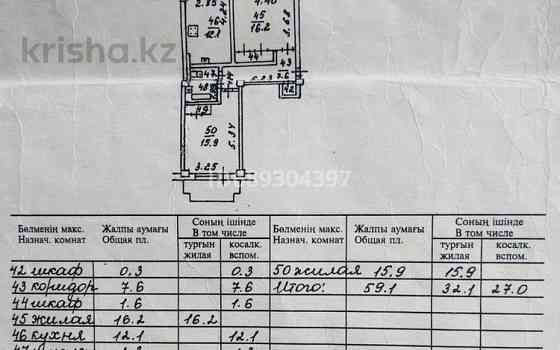 krisha.kz
2.85
4.40
46
12.1
4.24
45
16.2
3.68
44
43
7.6
m
47
48
5.23
42
49
50
15.9
5.34
3.25
Бөлменің макс.
Назнач. комнат
Жалпы аумағы
Общая пл.
Соның ішінде
В том числе
тұрғын
жилая
косалқ.
вспом.
Бөлменің макс.
Назнач. комнат
Жалпы аумағы
Общая пл.
Соның ішінде
В том числе
тұрғын
жилая
косалқ.
вспом.
42 шкаф 0.3 0.3 50 жилая 15.9 15.9
43 коридор 7.6 7.6 Итого: 59.1 32.1 27.0
44 шкаф 1.6 1.6
45 жилая 16.2 16.2
46 кухня 12.1 12.1